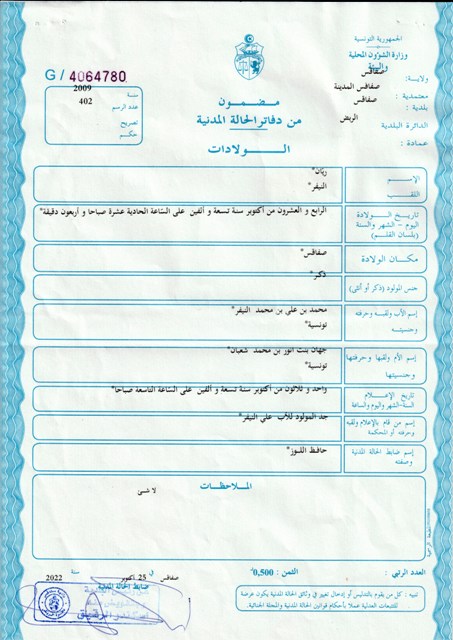 الجمهورية التونسية
وزارة الشؤون المحلية
والبيئة
ولاية: صفاقس
معتمدية: صفاقس المدينة
بلدية: صفاقس
الدائرة البلدية الربض
عمادة:
G / 4064780
سنة 2009
عدد الرسم 402
تصريح
حكم
مضمون
من دفاتر الحالة المدنية
الولادات
الإسم ريان*
اللقب النيفر*
تاريخ الولادة
اليوم - الشهر والسنة
(بلسان القلم)
الرابع و العشرون من أكتوبر سنة تسعة و ألفين على الساعة الحادية عشرة صباحا و أربعون دقيقة*
مكان الولادة صفاقس*
جنس المولود (ذكر أو أنثى) ذكر*
إسم الأب ولقبه وحرفته محمد بن علي بن محمد النيفر*
وجنسيته تونسية*
إسم الأم ولقبها وحرفتها جهان بنت أنور بن محمد شعبان*
وجنسيتها تونسية*
تاريخ الإعلام
السنة-الشهر واليوم والساعة
واحد و ثلاثون من أكتوبر سنة تسعة و ألفين على الساعة التاسعة صباحا*
إسم من قام بالإعلام ولقبه
وحرفته أو المحكمة
جد المولود للأب علي النيفر*
إسم ضابط الحالة المدنية
وصفته
حافظ اللوز*
الملاحظات
لا شئ
العدد الرتبي:
الثمن: 0,500
صفاقس في 25 أكتوبر سنة 2022
ضابط الحالة المدنية
تنبيه: كل من يقوم بالتدليس أو إدخال تغيير في وثائق الحالة المدنية يكون عرضة
للتتبعات العدلية عملا بأحكام قوانين الحالة المدنية والمجلة الجنائية.